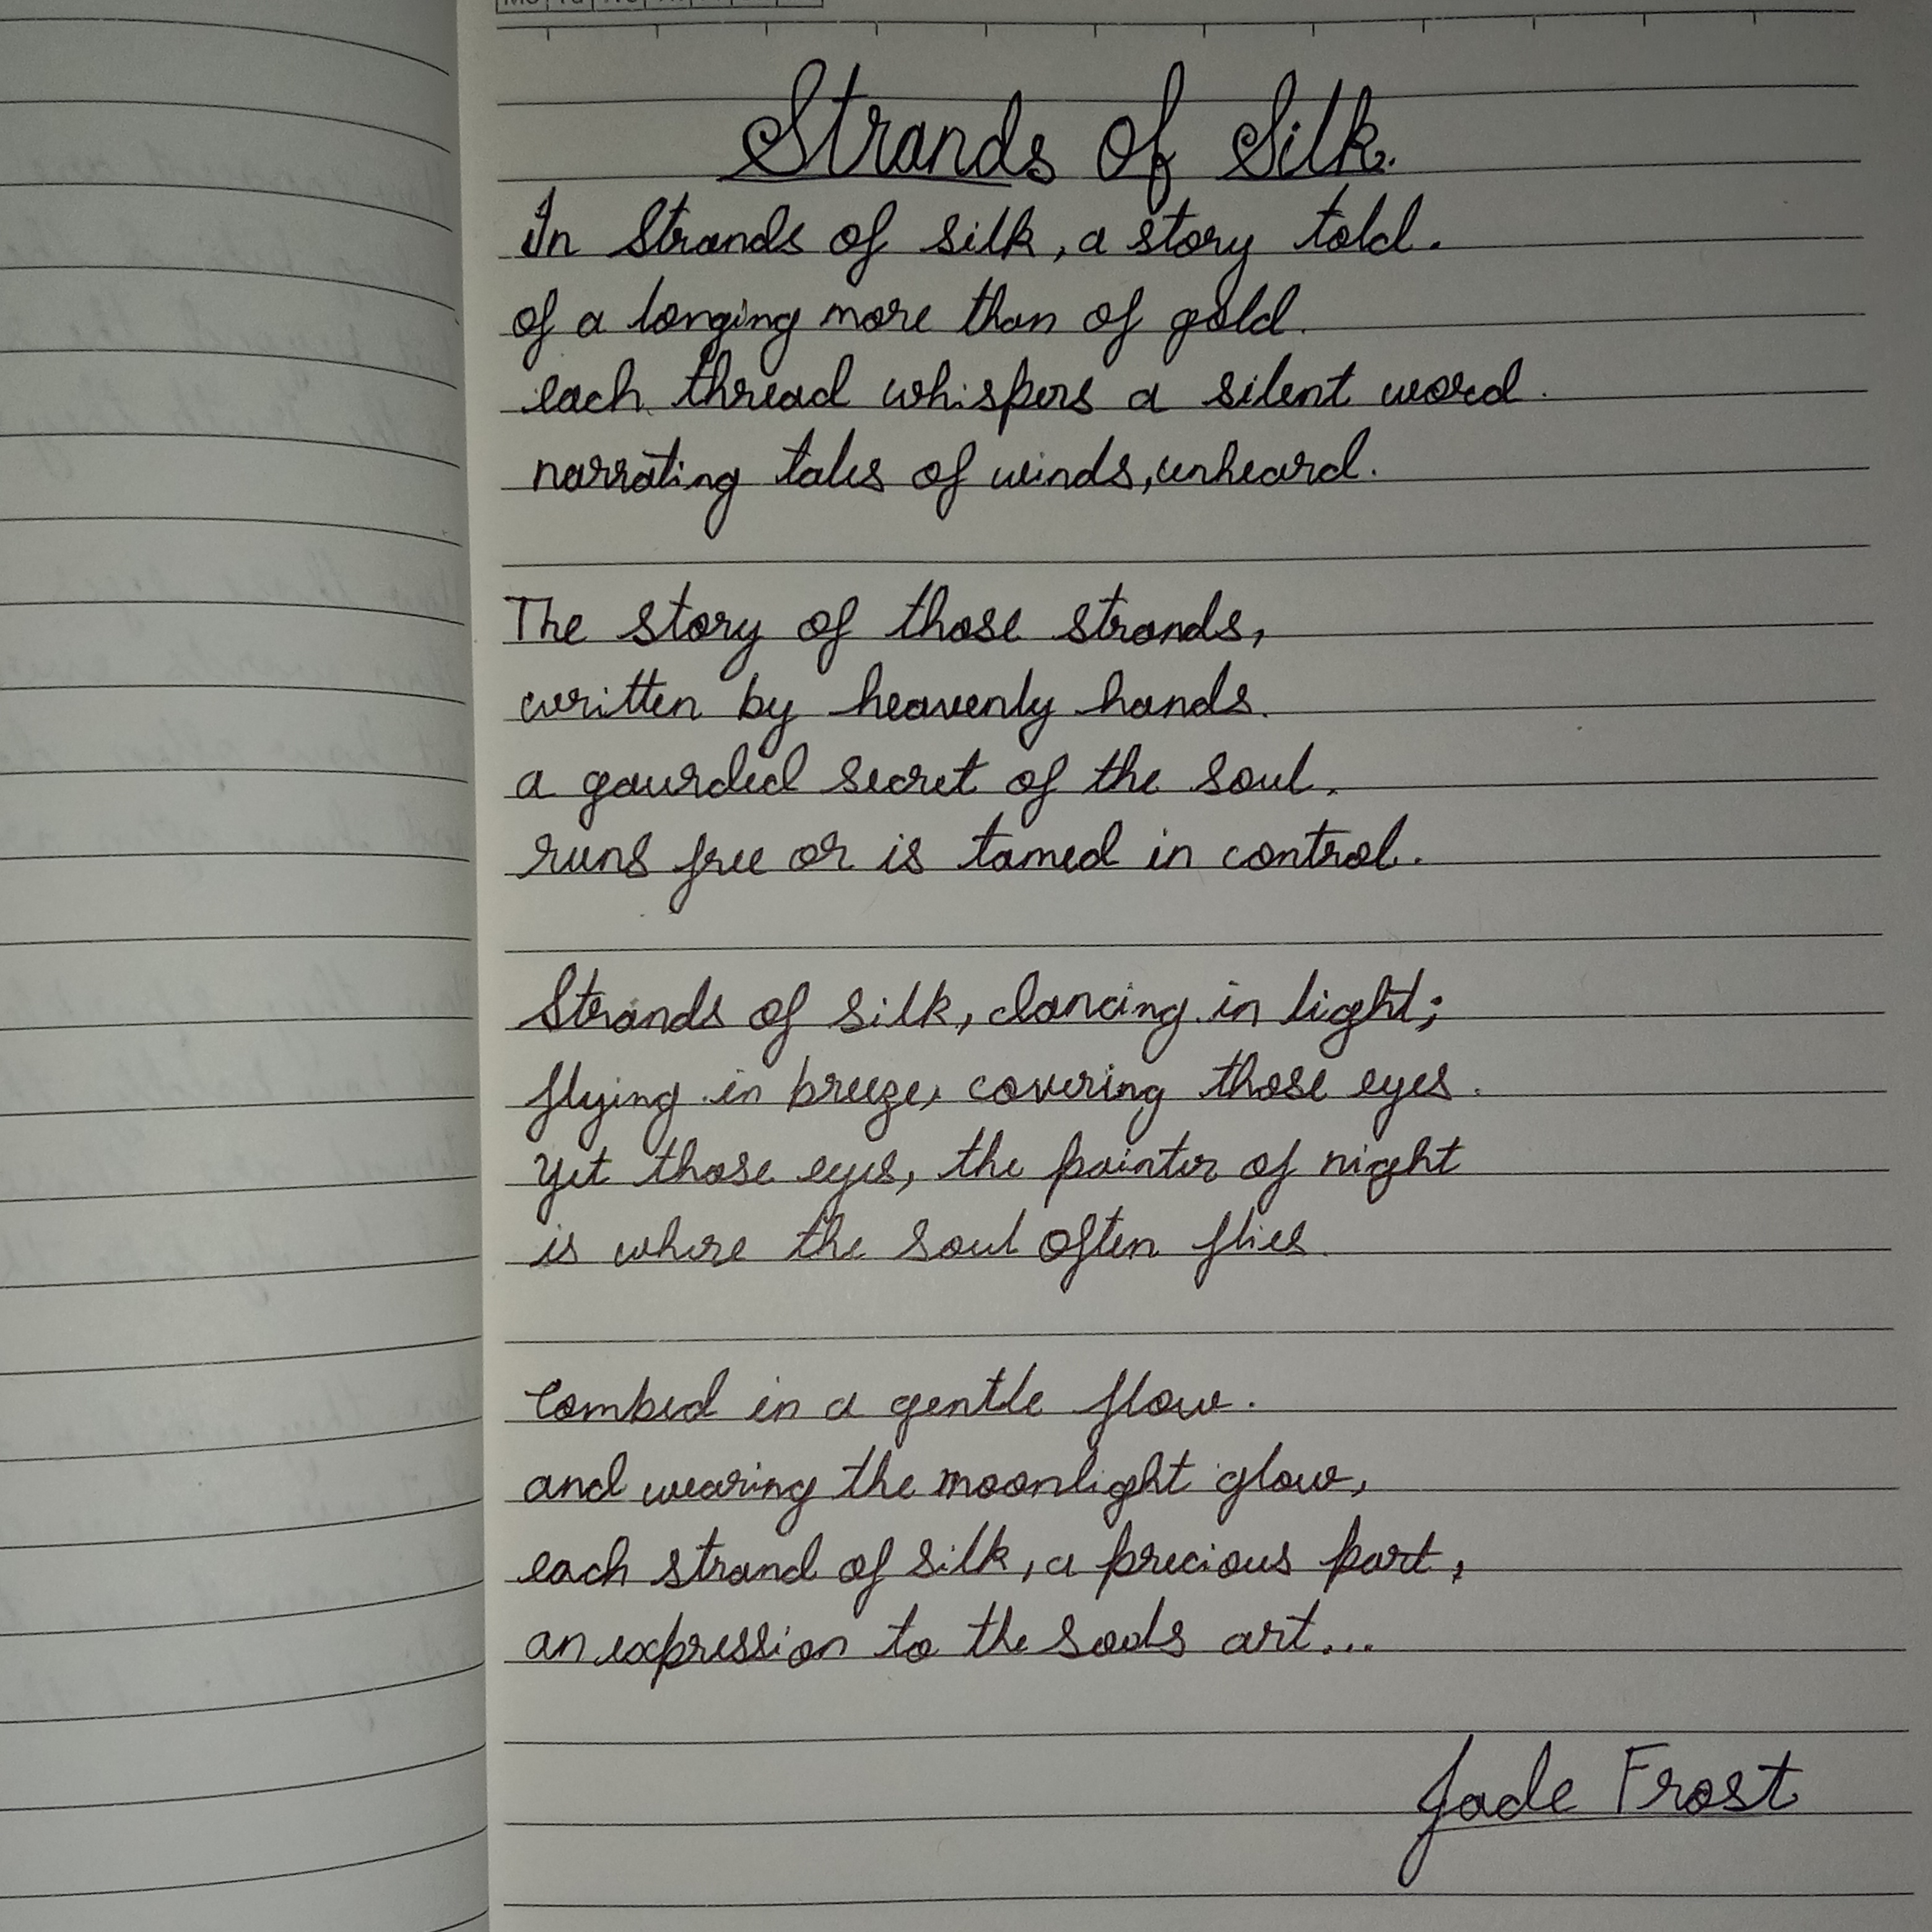 Strands of Silk.
In Strands of silk, a story told.
of a longing more than of gold.
each thread whispers a silent word.
narrating tales of winds, unheard.
The story of those strands,
written by heavenly hands.
a gaurded secret of the soul.
runs free or is tamed in control.
Strands of silk, dancing in light;
flying in breeze, covering those eyes.
Yet those eyes, the painter of night
is where the soul often flies.
Combed in a gentle flow.
and wearing the moonlight glow,
each strand of silk, a precious part,
an expression to the art...
Jade Frost